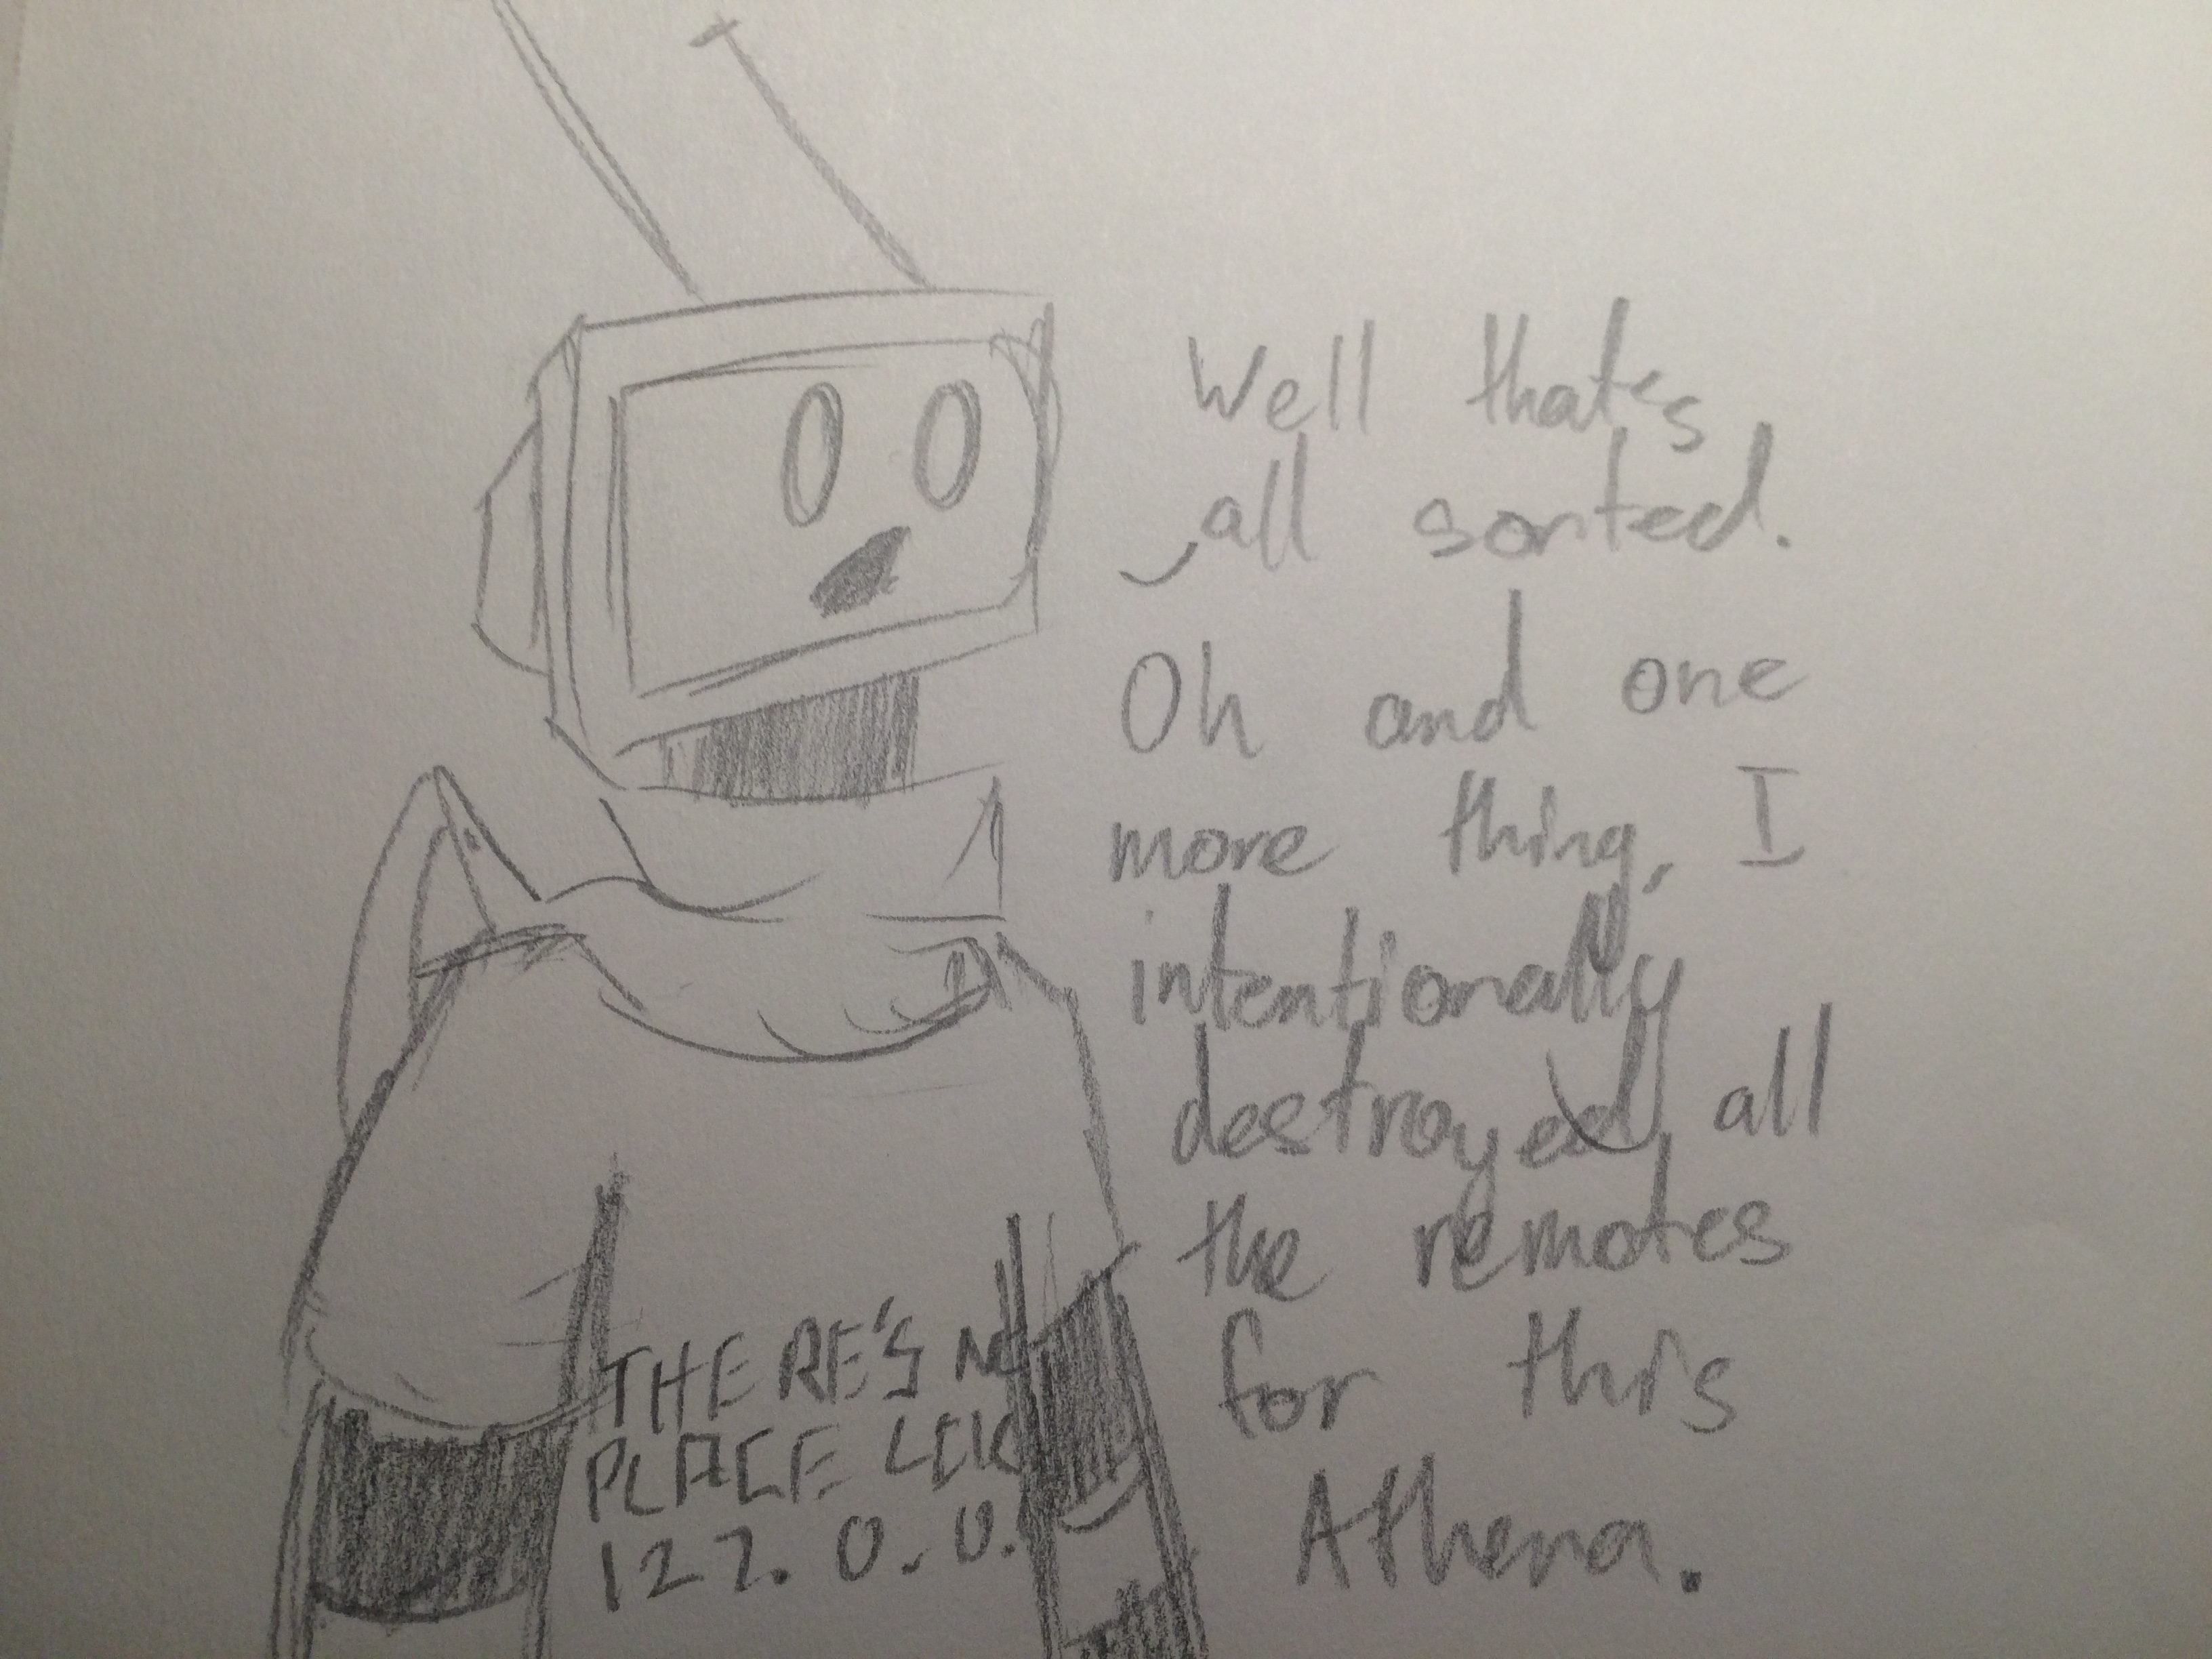 Well that's
all sorted.
Oh and one
more thing, I
intentionally
destroyed all
the remotes
for this
Athena.
THERE'S
PLACE
127.0.0.